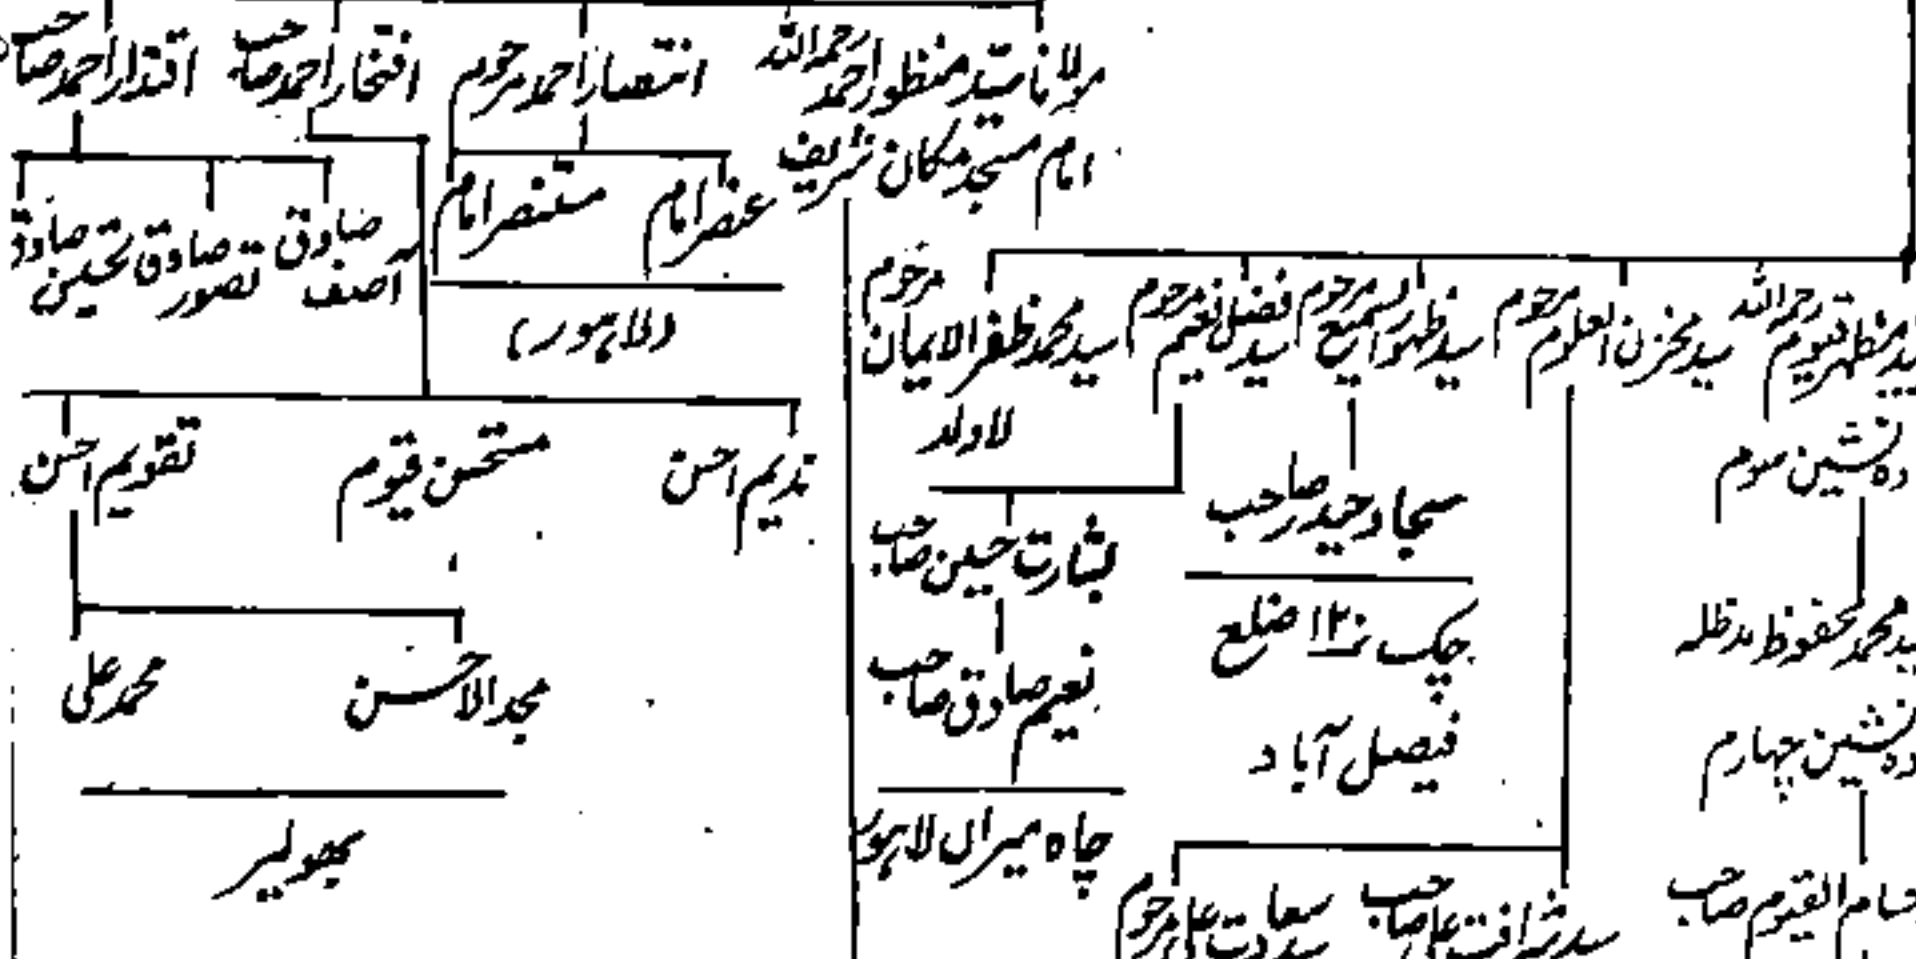 مولانا سید منظور احمد رحمہ اللہ
امام مسجد مکان شریف
انتصار احمد مرحوم
افتخار احمد صاحب
اقتدار احمد صاحب
عنصر امام
مستنصر امام
(لاہور)
آصف صادق
تصور صادق
تحسین
ندیم احسن
مستحسن قیوم
تقویم احسن
مجد الاحسن
محمد علی
مظہر قیوم رحمہ اللہ
سید مخزن العلوم مرحوم
سید ظہور السمیع مرحوم
سید فضل نعیم مرحوم
سید محمد ظفر الایمان مرحوم
لاولد
نشین سوم
محمد محفوظ مدظلہ
نشین چہارم
القیوم صاحب
سجاد حیدر صاحب
چک نمبر ۱۲۰ ضلع
فیصل آباد
بشارت حسین صاحب
نعیم صادق صاحب
چاہ میراں لاہور
سید شرافت علی صاحب
سید سعادت علی مرحوم